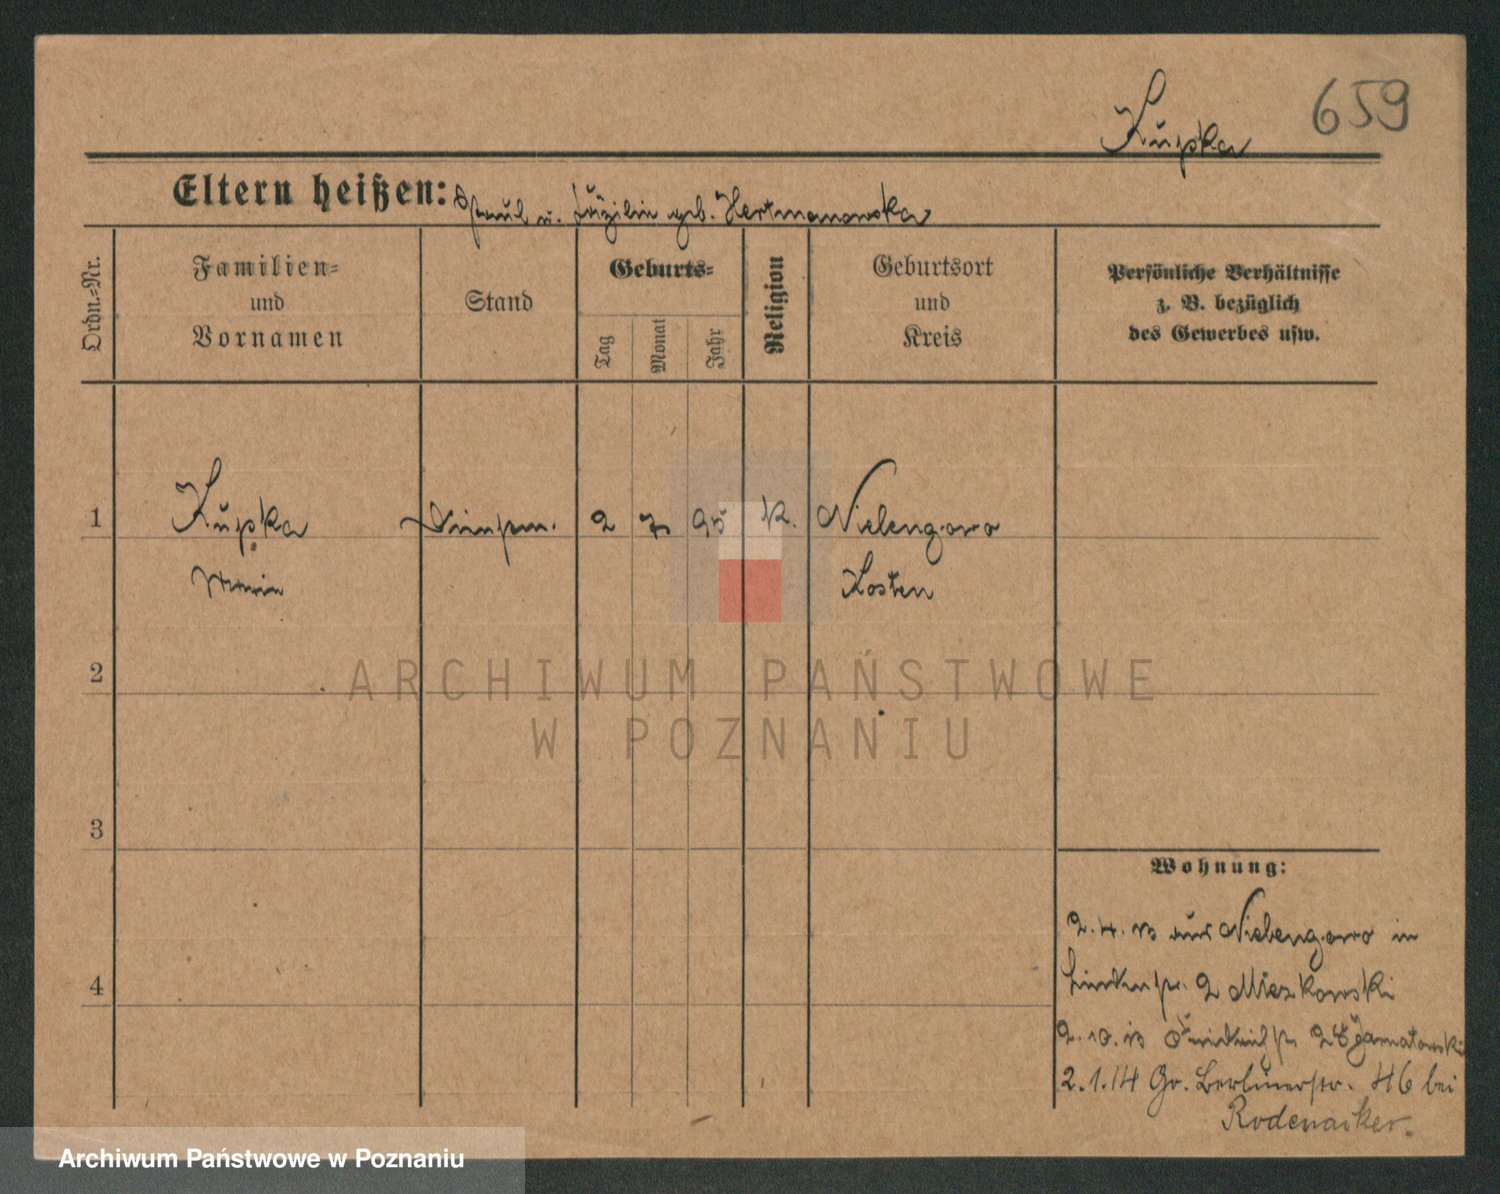 659
Kupka
Eltern heißen: Paul u. Cäzilie geb. Hertmanowska
Ordn.=Nr.
Familien=
und
Vornamen
Stand
Geburts=
Tag
Monat
Jahr
Religion
Geburtsort
und
Kreis
Persönliche Verhältnisse
z. B. bezüglich
des Gewerbes usw.
1 Kupka 2 7 95 k. Nielengowo
Marie Kosten
2
3
4
Wohnung:
2.4.13 aus Nielengowo in
Lindenstr. 2 Mieszkowski
2.10.13
2.1.14 Gr. Berlinerstr. 46 bei
Rodenacker.
ARCHIWUM PAŃSTWOWE
W POZNANIU
Archiwum Państwowe w Poznaniu